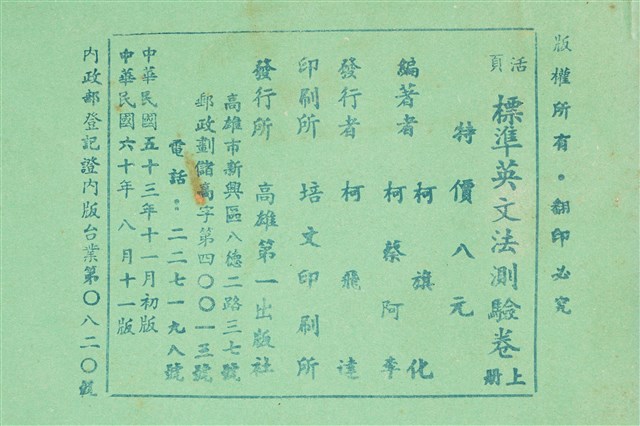 版權所有。翻印必究
活頁 標準英文法測驗卷 上册
特價八元
編著者 柯旗化
柯蔡阿李
發行者 柯飛達
印刷所 培文印刷所
發行所 高雄第一出版社
高雄市新興區八德二路三七號
郵政劃儲高字第四〇〇一三號
電話:二二七一九八號
中華民國五十三年十一月初版
中華民國六十年八月十一版
內政部登記證內版台業第〇八二〇號